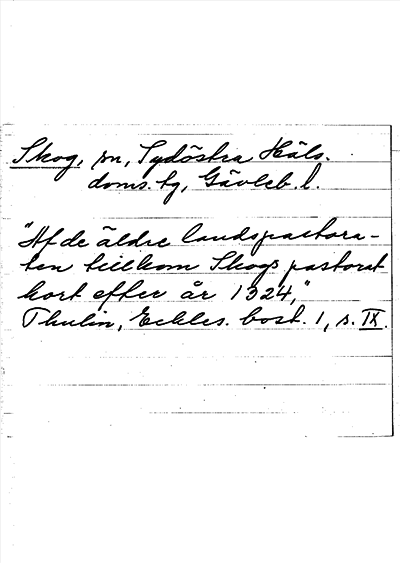 Skog, sn, Sydöstra Häls.
doms. hg, Gävleb. l.
"Af de äldre landspastora-
ten tillkom Skogs pastorat
kort efter år 1324,"
Thulin, Eckles. bost. 1, s. IX.